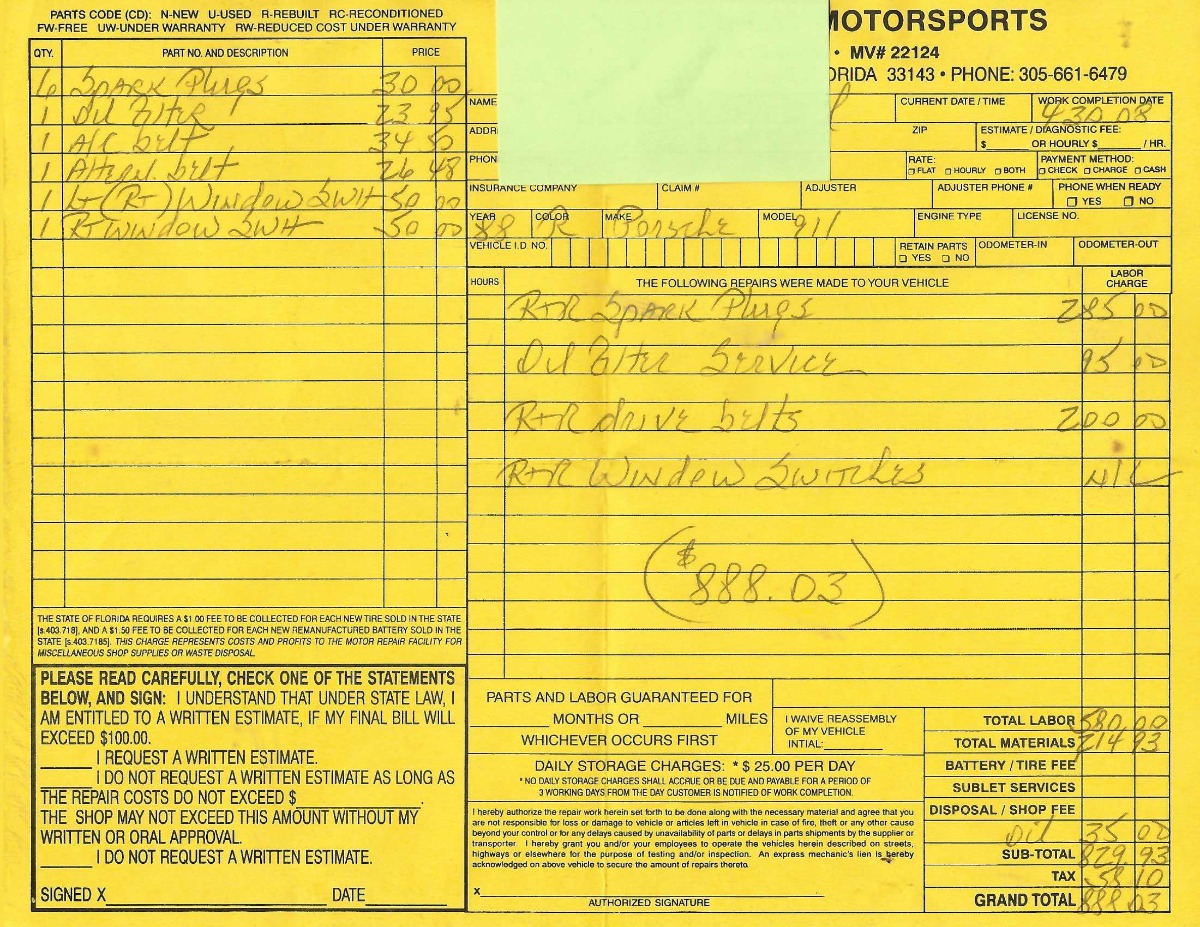 PARTS CODE (CD): N-NEW U-USED R-REBUILT RC-RECONDITIONED
FW-FREE UW-UNDER WARRANTY RW-REDUCED COST UNDER WARRANTY
QTY. PART NO. AND DESCRIPTION PRICE
6 Spark Plugs 30 00
1 Oil Filter 23 95
1 A/C belt 34 50
1 Altern. belt 26 48
1 Lt (Rt) Window SWH 50 00
1 Rt Window SWH 50 00
THE STATE OF FLORIDA REQUIRES A $1.00 FEE TO BE COLLECTED FOR EACH NEW TIRE SOLD IN THE STATE
[s.403.718], AND A $1.50 FEE TO BE COLLECTED FOR EACH NEW REMANUFACTURED BATTERY SOLD IN THE
STATE [s.403.7185]. THIS CHARGE REPRESENTS COSTS AND PROFITS TO THE MOTOR REPAIR FACILITY FOR
MISCELLANEOUS SHOP SUPPLIES OR WASTE DISPOSAL.
PLEASE READ CAREFULLY, CHECK ONE OF THE STATEMENTS
BELOW, AND SIGN: I UNDERSTAND THAT UNDER STATE LAW, I
AM ENTITLED TO A WRITTEN ESTIMATE, IF MY FINAL BILL WILL
EXCEED $100.00.
I REQUEST A WRITTEN ESTIMATE.
I DO NOT REQUEST A WRITTEN ESTIMATE AS LONG AS
THE REPAIR COSTS DO NOT EXCEED $ .
THE SHOP MAY NOT EXCEED THIS AMOUNT WITHOUT MY
WRITTEN OR ORAL APPROVAL.
I DO NOT REQUEST A WRITTEN ESTIMATE.
SIGNED X DATE
MOTORSPORTS
• MV# 22124
ORIDA 33143 • PHONE: 305-661-6479
NAME CURRENT DATE / TIME WORK COMPLETION DATE
4 30 08
ADDR ZIP ESTIMATE / DIAGNOSTIC FEE:
$ OR HOURLY $ / HR.
PHON RATE: PAYMENT METHOD:
FLAT HOURLY BOTH CHECK CHARGE CASH
INSURANCE COMPANY CLAIM # ADJUSTER ADJUSTER PHONE # PHONE WHEN READY
YES NO
YEAR COLOR MAKE MODEL ENGINE TYPE LICENSE NO.
88 R Porsche 911
VEHICLE I.D. NO. RETAIN PARTS ODOMETER-IN ODOMETER-OUT
YES NO
HOURS THE FOLLOWING REPAIRS WERE MADE TO YOUR VEHICLE LABOR CHARGE
R+R Spark Plugs 285 00
Oil Filter Service 95 00
R+R drive belts 200 00
R+R Window Switches N/C
$888.03
PARTS AND LABOR GUARANTEED FOR
MONTHS OR MILES
WHICHEVER OCCURS FIRST
I WAIVE REASSEMBLY
OF MY VEHICLE
INTIAL:
DAILY STORAGE CHARGES: * $ 25.00 PER DAY
* NO DAILY STORAGE CHARGES SHALL ACCRUE OR BE DUE AND PAYABLE FOR A PERIOD OF
3 WORKING DAYS FROM THE DAY CUSTOMER IS NOTIFIED OF WORK COMPLETION.
I hereby authorize the repair work herein set forth to be done along with the necessary material and agree that you
are not responsible for loss or damage to vehicle or articles left in vehicle in case of fire, theft or any other cause
beyond your control or for any delays caused by unavailability of parts or delays in parts shipments by the supplier or
transporter. I hereby grant you and/or your employees to operate the vehicles herein described on streets,
highways or elsewhere for the purpose of testing and/or inspection. An express mechanic's lien is hereby
acknowledged on above vehicle to secure the amount of repairs thereto.
X
AUTHORIZED SIGNATURE
TOTAL LABOR 580 00
TOTAL MATERIALS 214 93
BATTERY / TIRE FEE
SUBLET SERVICES
DISPOSAL / SHOP FEE
Oil 35 00
SUB-TOTAL 829 93
TAX 58 10
GRAND TOTAL 888 03